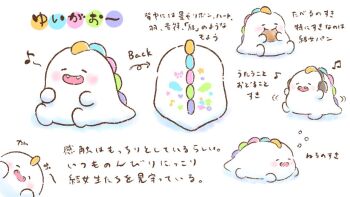 ゆいがお〜
背中には星やリボン、ハート、
羽、音符、「結」のような
もよう
Back
たべるのすき
特にすきなのは
結女パン
うたうこと
おどること
すき
感触はもっちりとしているらしい。
いつものんびりにっこり
結女生たちを見守っている。
ねるのすき